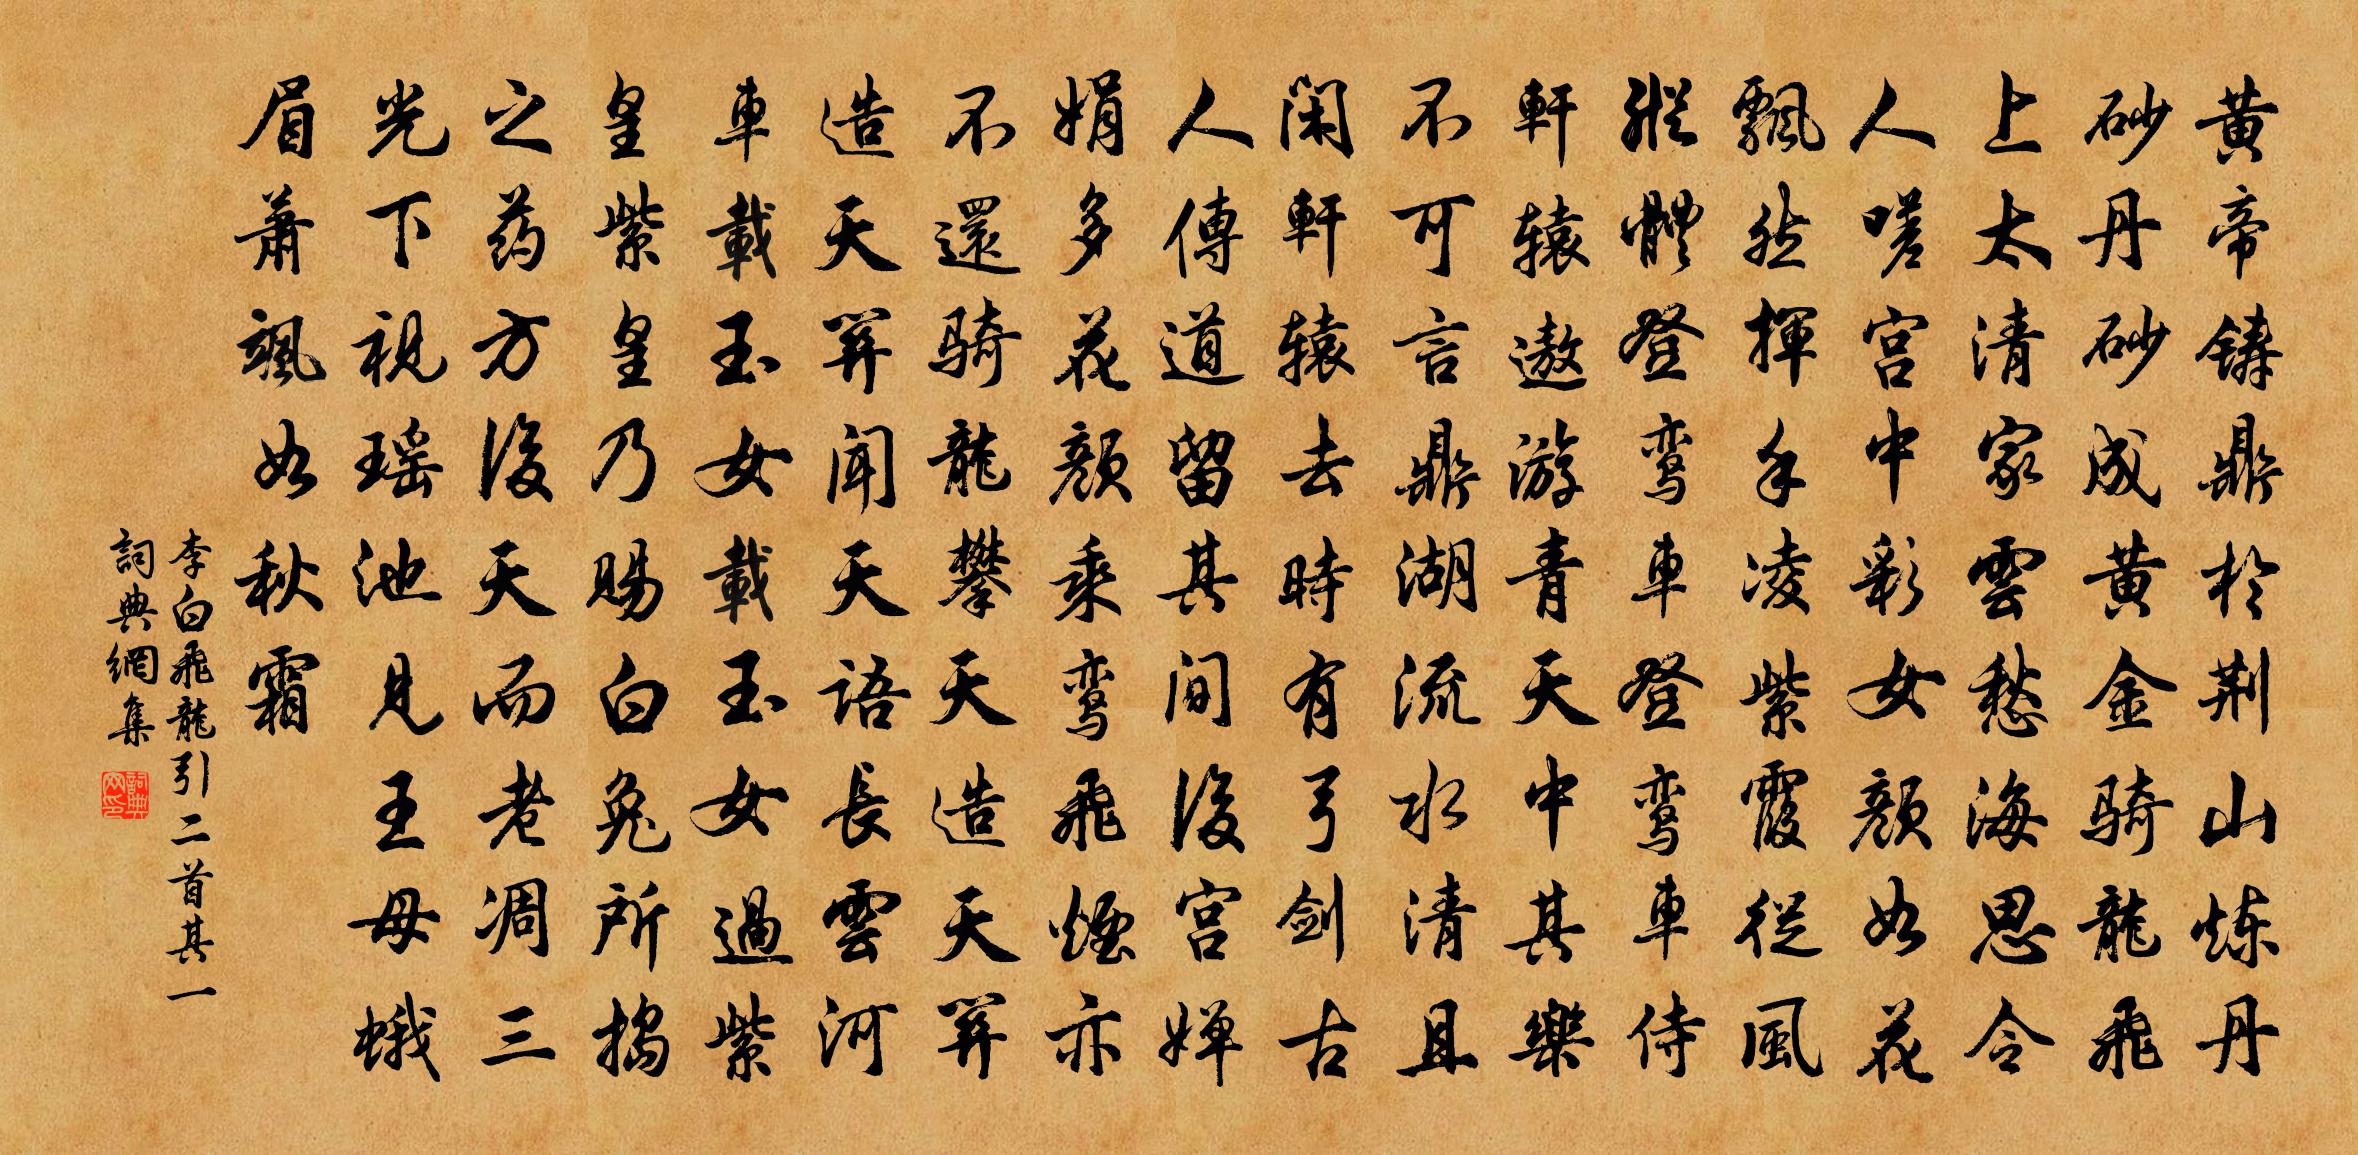 黄帝鑄鼎於荆山炼丹
砂丹砂成黄金骑龍飛
上太清家雲愁海思令
人嗟宫中彩女顔如花
飄然揮手凌紫霞從風
縱體登鸾車登鸾車侍
軒辕遨游青天中其樂
不可言鼎湖流水清且
閑軒辕去時有弓劍古
人傳道留其間後宫嬋
娟多花顔乘鸾飛煙亦
不還骑龍攀天造天關
造天關聞天語長雲河
車載玉女載玉女過紫
皇紫皇乃賜白兔所搗
之药方後天而老凋三
光下視瑶池見王母蛾
眉蕭颯如秋霜
李白飛龍引二首其一
詞典網集
詞典网印